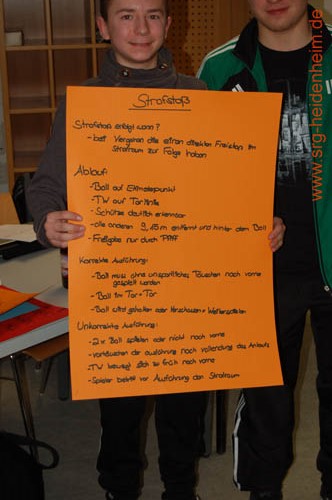 Strafstoß
Strafstoß erfolgt wann?
- bei Vergehen die einen direkten Freistoß im
Strafraum zur Folge haben
Ablauf:
- Ball auf Elfmeterpunkt
- TW auf Torlinie
- Schütze deutlich erkennbar
- alle anderen 9,15m entfernt und hinter dem Ball
- Freigabe nur durch Pfiff
Korrekte Ausführung:
- Ball muss ohne unsportliches Täuschen nach vorne
gespielt werden
- Ball im Tor = Tor
- Ball wird gehalten oder Weiterspielen
Unkorrekte Ausführung:
- 2x Ball spielen oder nicht nach vorne
- vortäuschen der ausführung nach vollendung des Anlaufs
- TW bewegt sich zu früh nach vorne
- Spieler betritt vor Ausführung den Strafraum
www.srg-heidenheim.de